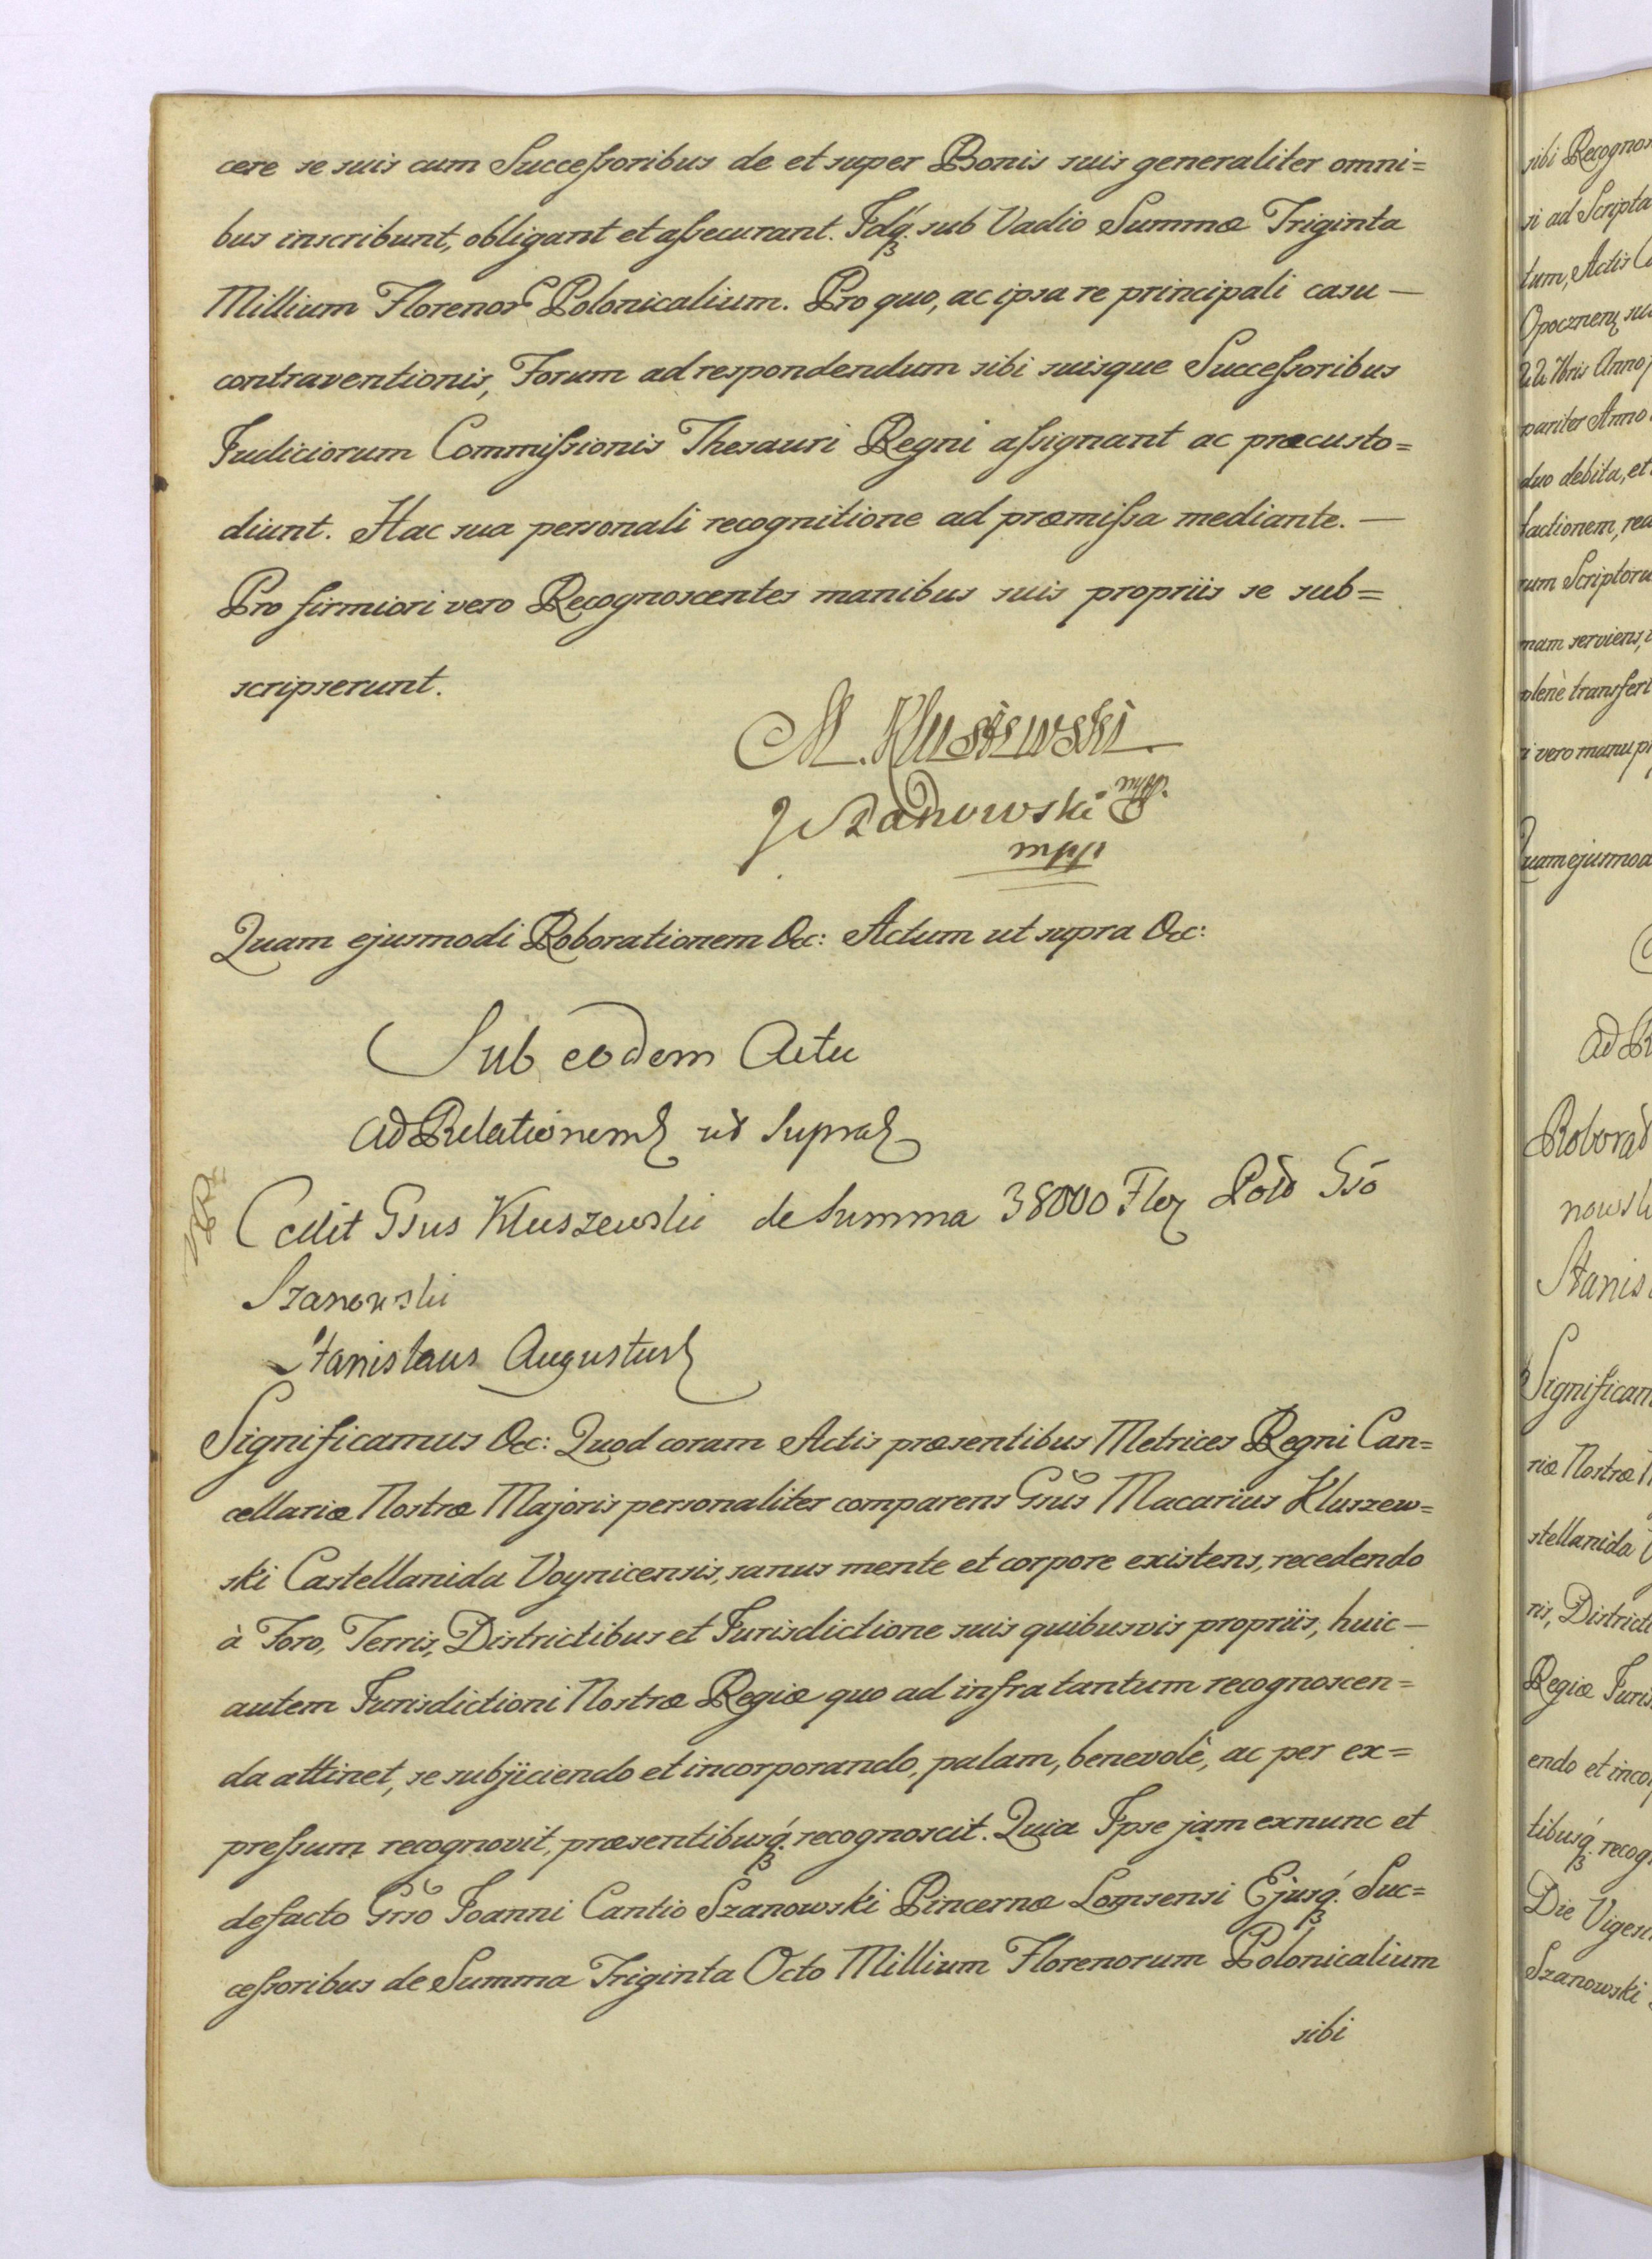 cere se suis cum Succeſsoribus de et super Bonis suis generaliter omni=
bus inscribunt, obligant et aſsecurant. Idq́. sub Vadio Summæ Triginta
Millium Florenor Polonicalium. Pro quo, ac ipsa re principali casu —
contraventionis, Forum ad respondendum sibi suisque Succeſsoribus
Judiciorum Commiſsionis Thesauri Regni aſsignant ac præcusto=
diunt. Hac sua personali recognitione ad præmiſsa mediante. —
Pro firmiori vero Recognoscentes manibus suis propriis se sub=
scripserunt.
M. Kluszewski
mpp.
J Szanowski
mpp
Quam ejusmodi Roborationem &c: Actum ut supra &c:
Sub eodem Actu
ad Relationem ut Supra
Cedit Gsus Kluszewski de Summa 38000 Flor Pol Gso
Szanowski
Stanislaus Augustus
Significamus &c: Quod coram Actis præsentibus Metrices Regni Can=
cellariæ Nostræ Majoris personaliter comparens Gsus Macarius Kluszew=
ski Castellanida Voynicensis, sanus mente et corpore existens, recedendo
à Foro, Terris, Districtibus et Jurisdictione suis quibusvis propriis, huic —
autem Jurisdictioni Nostræ Regiæ quo ad infra tantum recognoscen=
da attinet, se subjiciendo et incorporando, palam, benevolè, ac per ex=
preſsum recognovit, præsentibusq́. recognoscit. Quia Ipse jam exnunc et
defacto Grso Joanni Cantio Szanowski Pincernæ Lomsensi Ejusq́. Suc=
ceſsoribus de Summa Triginta Octo Millium Florenorum Polonicalium
sibi
sibi Recognos
si ad Scripta
tum, Actis
pariter Anno
duo debita, et
factionem, rea
rum Scriptoru
mam serviens,
plenè transfert
i vero manu pr
Quam ejusmod
ad R
Roborat
nowski
Stanis
Significam
riæ Nostræ
stellanida
ris, Districti
Regiæ Juris
endo et incor
tibusq́. recog
Die Vigesi
Szanowski